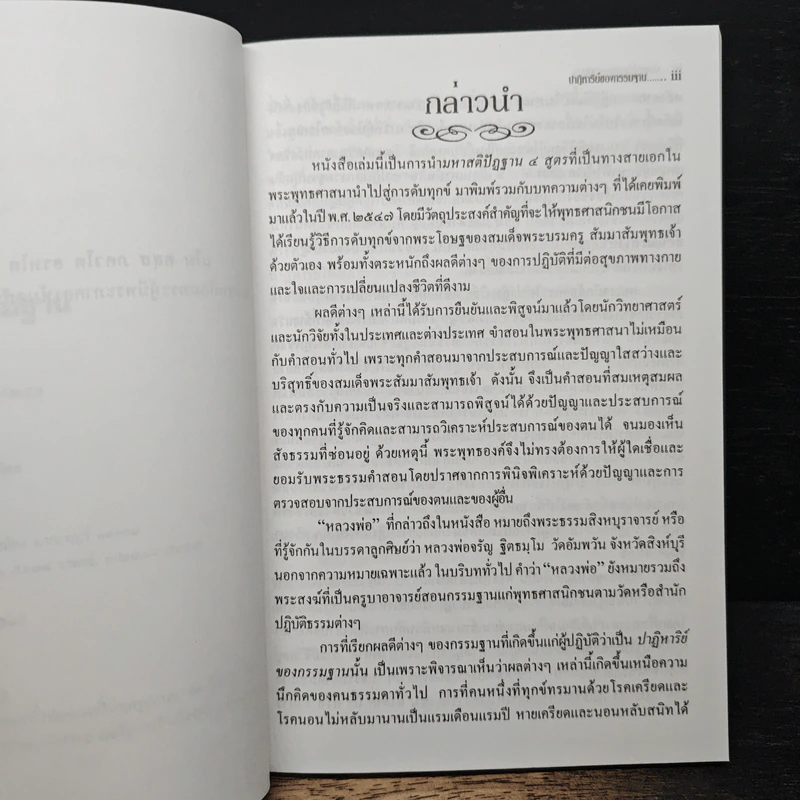 ปาฏิหาริย์ของกรรมฐาน....... iii
กล่าวนำ
หนังสือเล่มนี้เป็นการนำมหาสติปัฏฐาน ๔ สูตรที่เป็นทางสายเอกใน
พระพุทธศาสนานำไปสู่การดับทุกข์ มาพิมพ์รวมกับบทความต่างๆ ที่ได้เคยพิมพ์
มาแล้วในปี พ.ศ. ๒๕๔๗ โดยมีวัตถุประสงค์สำคัญที่จะให้พุทธศาสนิกชนมีโอกาส
ได้เรียนรู้วิธีการดับทุกข์จากพระโอษฐของสมเด็จพระบรมครู สัมมาสัมพุทธเจ้า
ด้วยตัวเอง พร้อมทั้งตระหนักถึงผลดีต่างๆ ของการปฏิบัติที่มีต่อสุขภาพทางกาย
และใจและการเปลี่ยนแปลงชีวิตที่ดีงาม
ผลดีต่างๆ เหล่านี้ได้รับการยืนยันและพิสูจน์มาแล้วโดยนักวิทยาศาสตร์
และนักวิจัยทั้งในประเทศและต่างประเทศ คำสอนในพระพุทธศาสนาไม่เหมือน
กับคำสอนทั่วไป เพราะทุกคำสอนมาจากประสบการณ์และปัญญาใสสว่างและ
บริสุทธิ์ของสมเด็จพระสัมมาสัมพุทธเจ้า ดังนั้น จึงเป็นคำสอนที่สมเหตุสมผล
และตรงกับความเป็นจริงและสามารถพิสูจน์ได้ด้วยปัญญาและประสบการณ์
ของทุกคนที่รู้จักคิดและสามารถวิเคราะห์ประสบการณ์ของตนได้ จนมองเห็น
สัจธรรมที่ซ่อนอยู่ ด้วยเหตุนี้ พระพุทธองค์จึงไม่ทรงต้องการให้ผู้ใดเชื่อและ
ยอมรับพระธรรมคำสอนโดยปราศจากการพินิจพิเคราะห์ด้วยปัญญาและการ
ตรวจสอบจากประสบการณ์ของตนและของผู้อื่น
“หลวงพ่อ” ที่กล่าวถึงในหนังสือ หมายถึงพระธรรมสิงหบุราจารย์ หรือ
ที่รู้จักกันในบรรดาลูกศิษย์ว่า หลวงพ่อจรัญ ฐิตธมฺโม วัดอัมพวัน จังหวัดสิงห์บุรี
นอกจากความหมายเฉพาะแล้ว ในบริบททั่วไป คำว่า “หลวงพ่อ” ยังหมายรวมถึง
พระสงฆ์ที่เป็นครูบาอาจารย์สอนกรรมฐานแก่พุทธศาสนิกชนตามวัดหรือสำนัก
ปฏิบัติธรรมต่างๆ
การที่เรียกผลดีต่างๆ ของกรรมฐานที่เกิดขึ้นแก่ผู้ปฏิบัติว่าเป็น ปาฏิหาริย์
ของกรรมฐานนั้น เป็นเพราะพิจารณาเห็นว่าผลต่างๆ เหล่านี้เกิดขึ้นเหนือความ
นึกคิดของคนธรรมดาทั่วไป การที่คนหนึ่งที่ทุกข์ทรมานด้วยโรคเครียดและ
โรคนอนไม่หลับมานานเป็นแรมเดือนแรมปี หายเครียดและนอนหลับสนิทได้